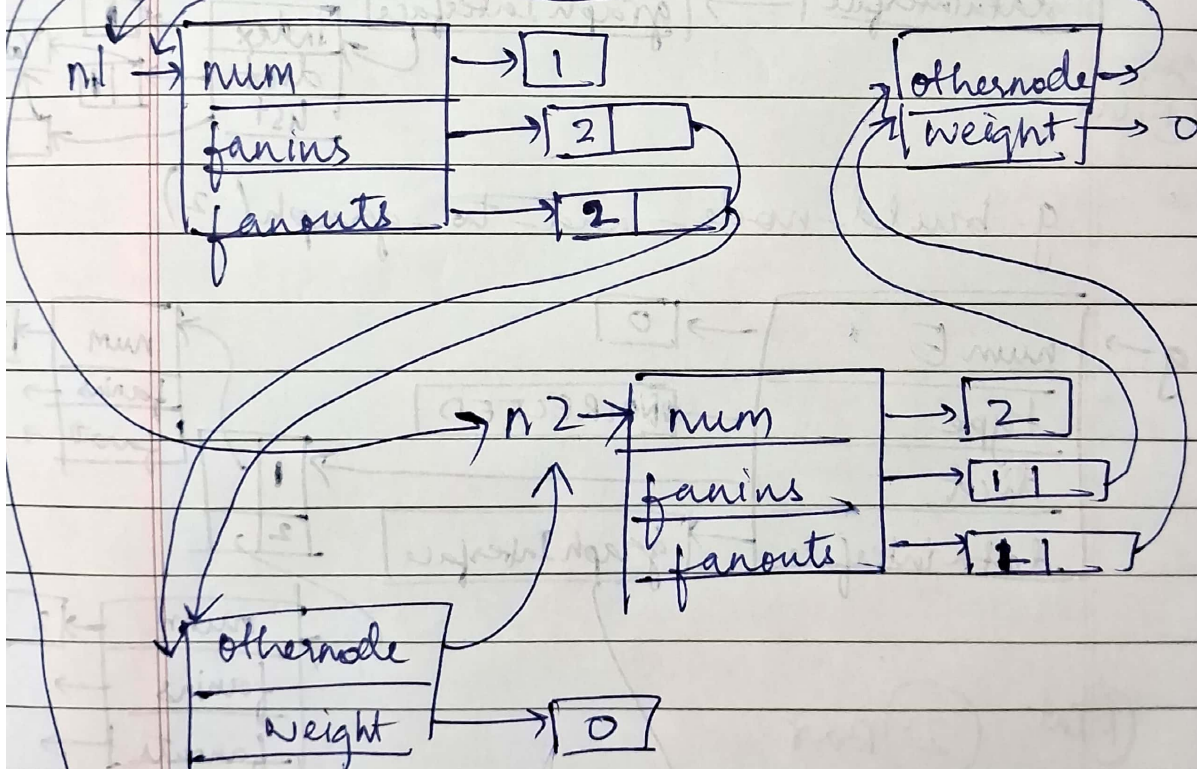 n1 num 1
fanins 2
fanouts 2
othernode
weight 0
n2 num 2
fanins 1
fanouts 1
othernode
weight 0